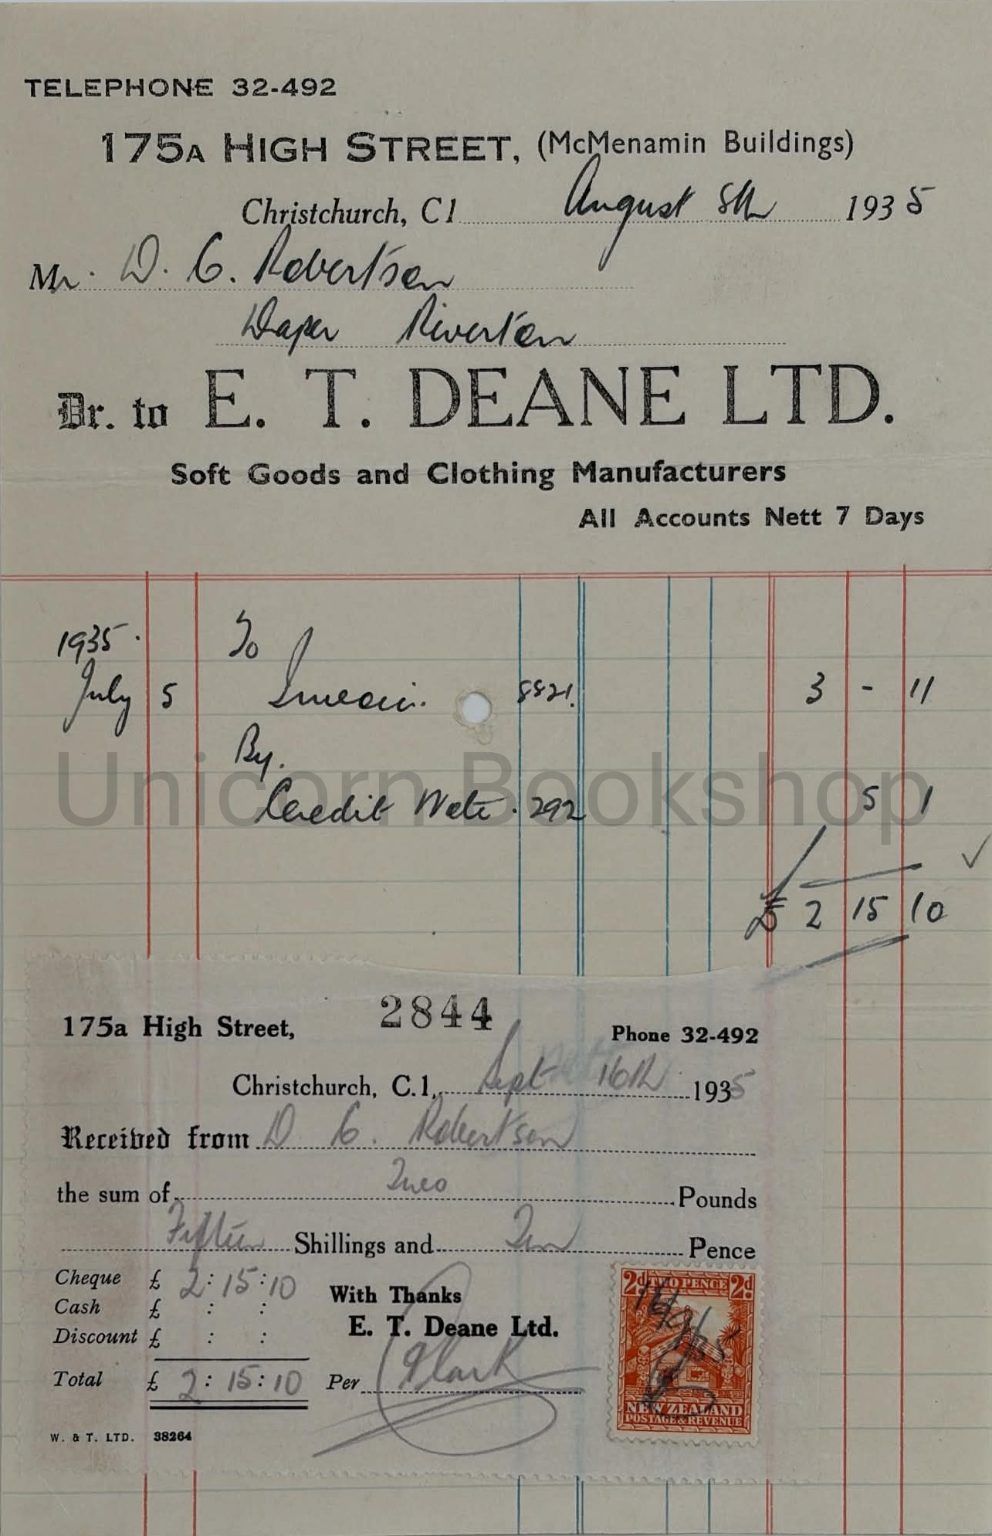 TELEPHONE 32-492
175A HIGH STREET, (McMenamin Buildings)
Christchurch, C1 August 8th 1935
Mr. D. C. Robertson
Draper Riverton
Dr. to E. T. DEANE LTD.
Soft Goods and Clothing Manufacturers
All Accounts Nett 7 Days
1935. To
July 5 Invoice. 8821. 3 - 11
By.
Credit Note. 292 5 1
£ 2 15 10
Unicorn Bookshop
175a High Street, 2844 Phone 32-492
Christchurch, C.1, Sept 16th 1935
Received from D C. Robertson
the sum of Two Pounds
Fifteen Shillings and Ten Pence
Cheque £ 2:15:10 With Thanks
Cash £ : :
E. T. Deane Ltd.
Discount £ : :
Total £ 2:15:10 Per
W. & T. LTD. 38264
2d TWO PENCE 2d
NEW ZEALAND
POSTAGE & REVENUE